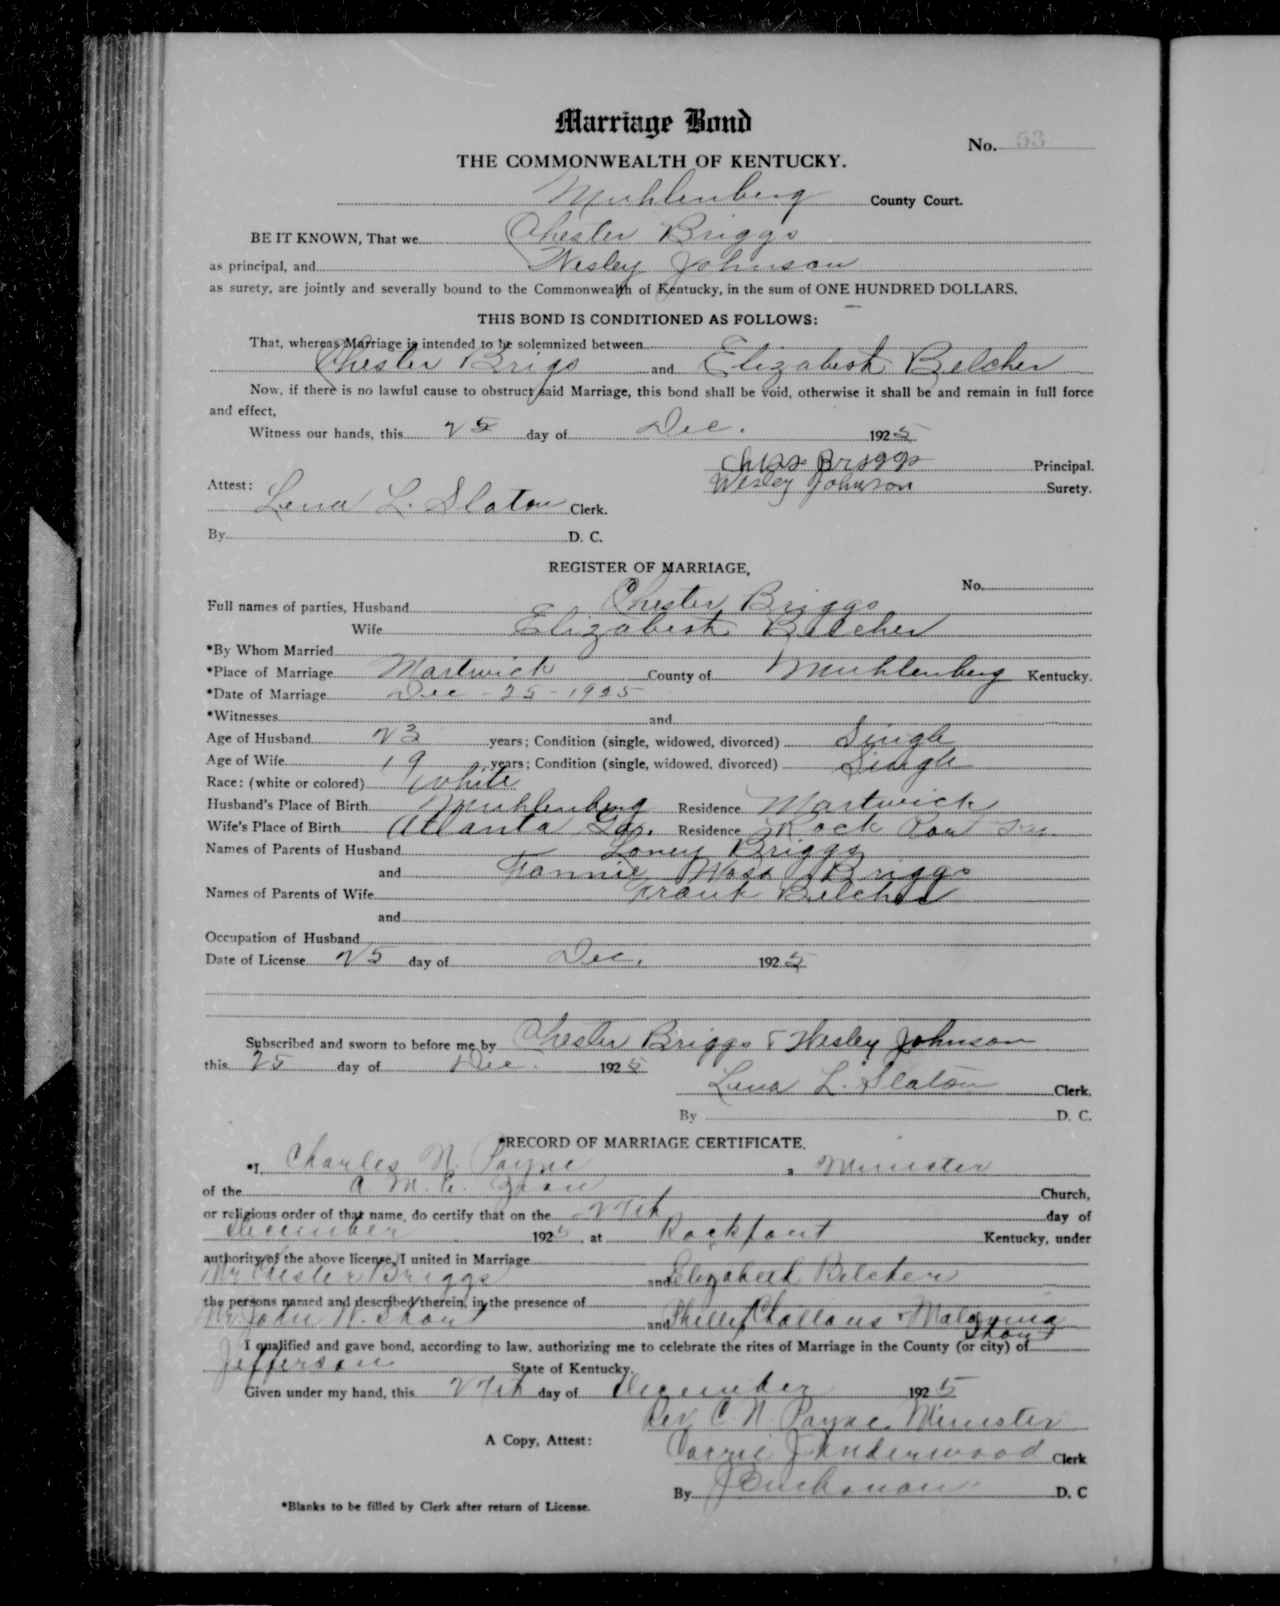 Marriage Bond
No. 53
THE COMMONWEALTH OF KENTUCKY.
Muhlenberg County Court.
BE IT KNOWN, That we Chester Briggs
as principal, and Wesley Johnson
as surety, are jointly and severally bound to the Commonwealth of Kentucky, in the sum of ONE HUNDRED DOLLARS.
THIS BOND IS CONDITIONED AS FOLLOWS:
That, whereas Marriage is intended to be solemnized between
Chester Brigs and Elizabeth Belcher
Now, if there is no lawful cause to obstruct said Marriage, this bond shall be void, otherwise it shall be and remain in full force
and effect,
Witness our hands, this 25 day of Dec. 1925
Chess Briggs Principal.
Wesley Johnson Surety.
Attest: Lena L. Slaton Clerk.
By D. C.
REGISTER OF MARRIAGE,
No.
Full names of parties, Husband Chester Briggs
Wife Elizabeth Belcher
*By Whom Married
*Place of Marriage Martwick County of Muhlenberg Kentucky.
*Date of Marriage Dec - 25 - 1925
*Witnesses and
Age of Husband 23 years; Condition (single, widowed, divorced) Single
Age of Wife 19 years; Condition (single, widowed, divorced) Single
Race: (white or colored) White
Husband's Place of Birth Muhlenberg Residence Martwick
Wife's Place of Birth Atlanta Ga. Residence Rock
Names of Parents of Husband Loney Briggs
and Fannie Moss Briggs
Names of Parents of Wife Frank Belcher
and
Occupation of Husband
Date of License 25 day of Dec. 1925
Subscribed and sworn to before me by Chester Briggs & Wesley Johnson
this 25 day of Dec. 1925
Lena L. Slaton Clerk.
By D. C.
*RECORD OF MARRIAGE CERTIFICATE.
*I, Charles N. Payne, a Minister
of the A. M. E. Zion Church,
or religious order of that name, do certify that on the 27th day of
December 1925, at Rockport Kentucky, under
authority of the above license, I united in Marriage
Mr Chester Briggs and Elizabeth Belcher
the persons named and described therein, in the presence of
Mr. John W. Shout and Phillip Challans Malovina
Shout
I qualified and gave bond, according to law, authorizing me to celebrate the rites of Marriage in the County (or city) of
Jefferson State of Kentucky.
Given under my hand, this 27th day of December 1925
Rev. C. N. Payne Minister
A Copy, Attest: Carrie J Underwood Clerk
By J Buchanan D. C
*Blanks to be filled by Clerk after return of License.